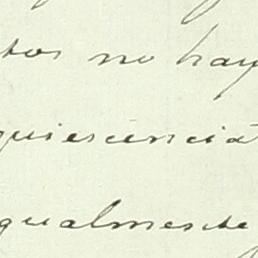 tos no hay
quiescencia
qualmente